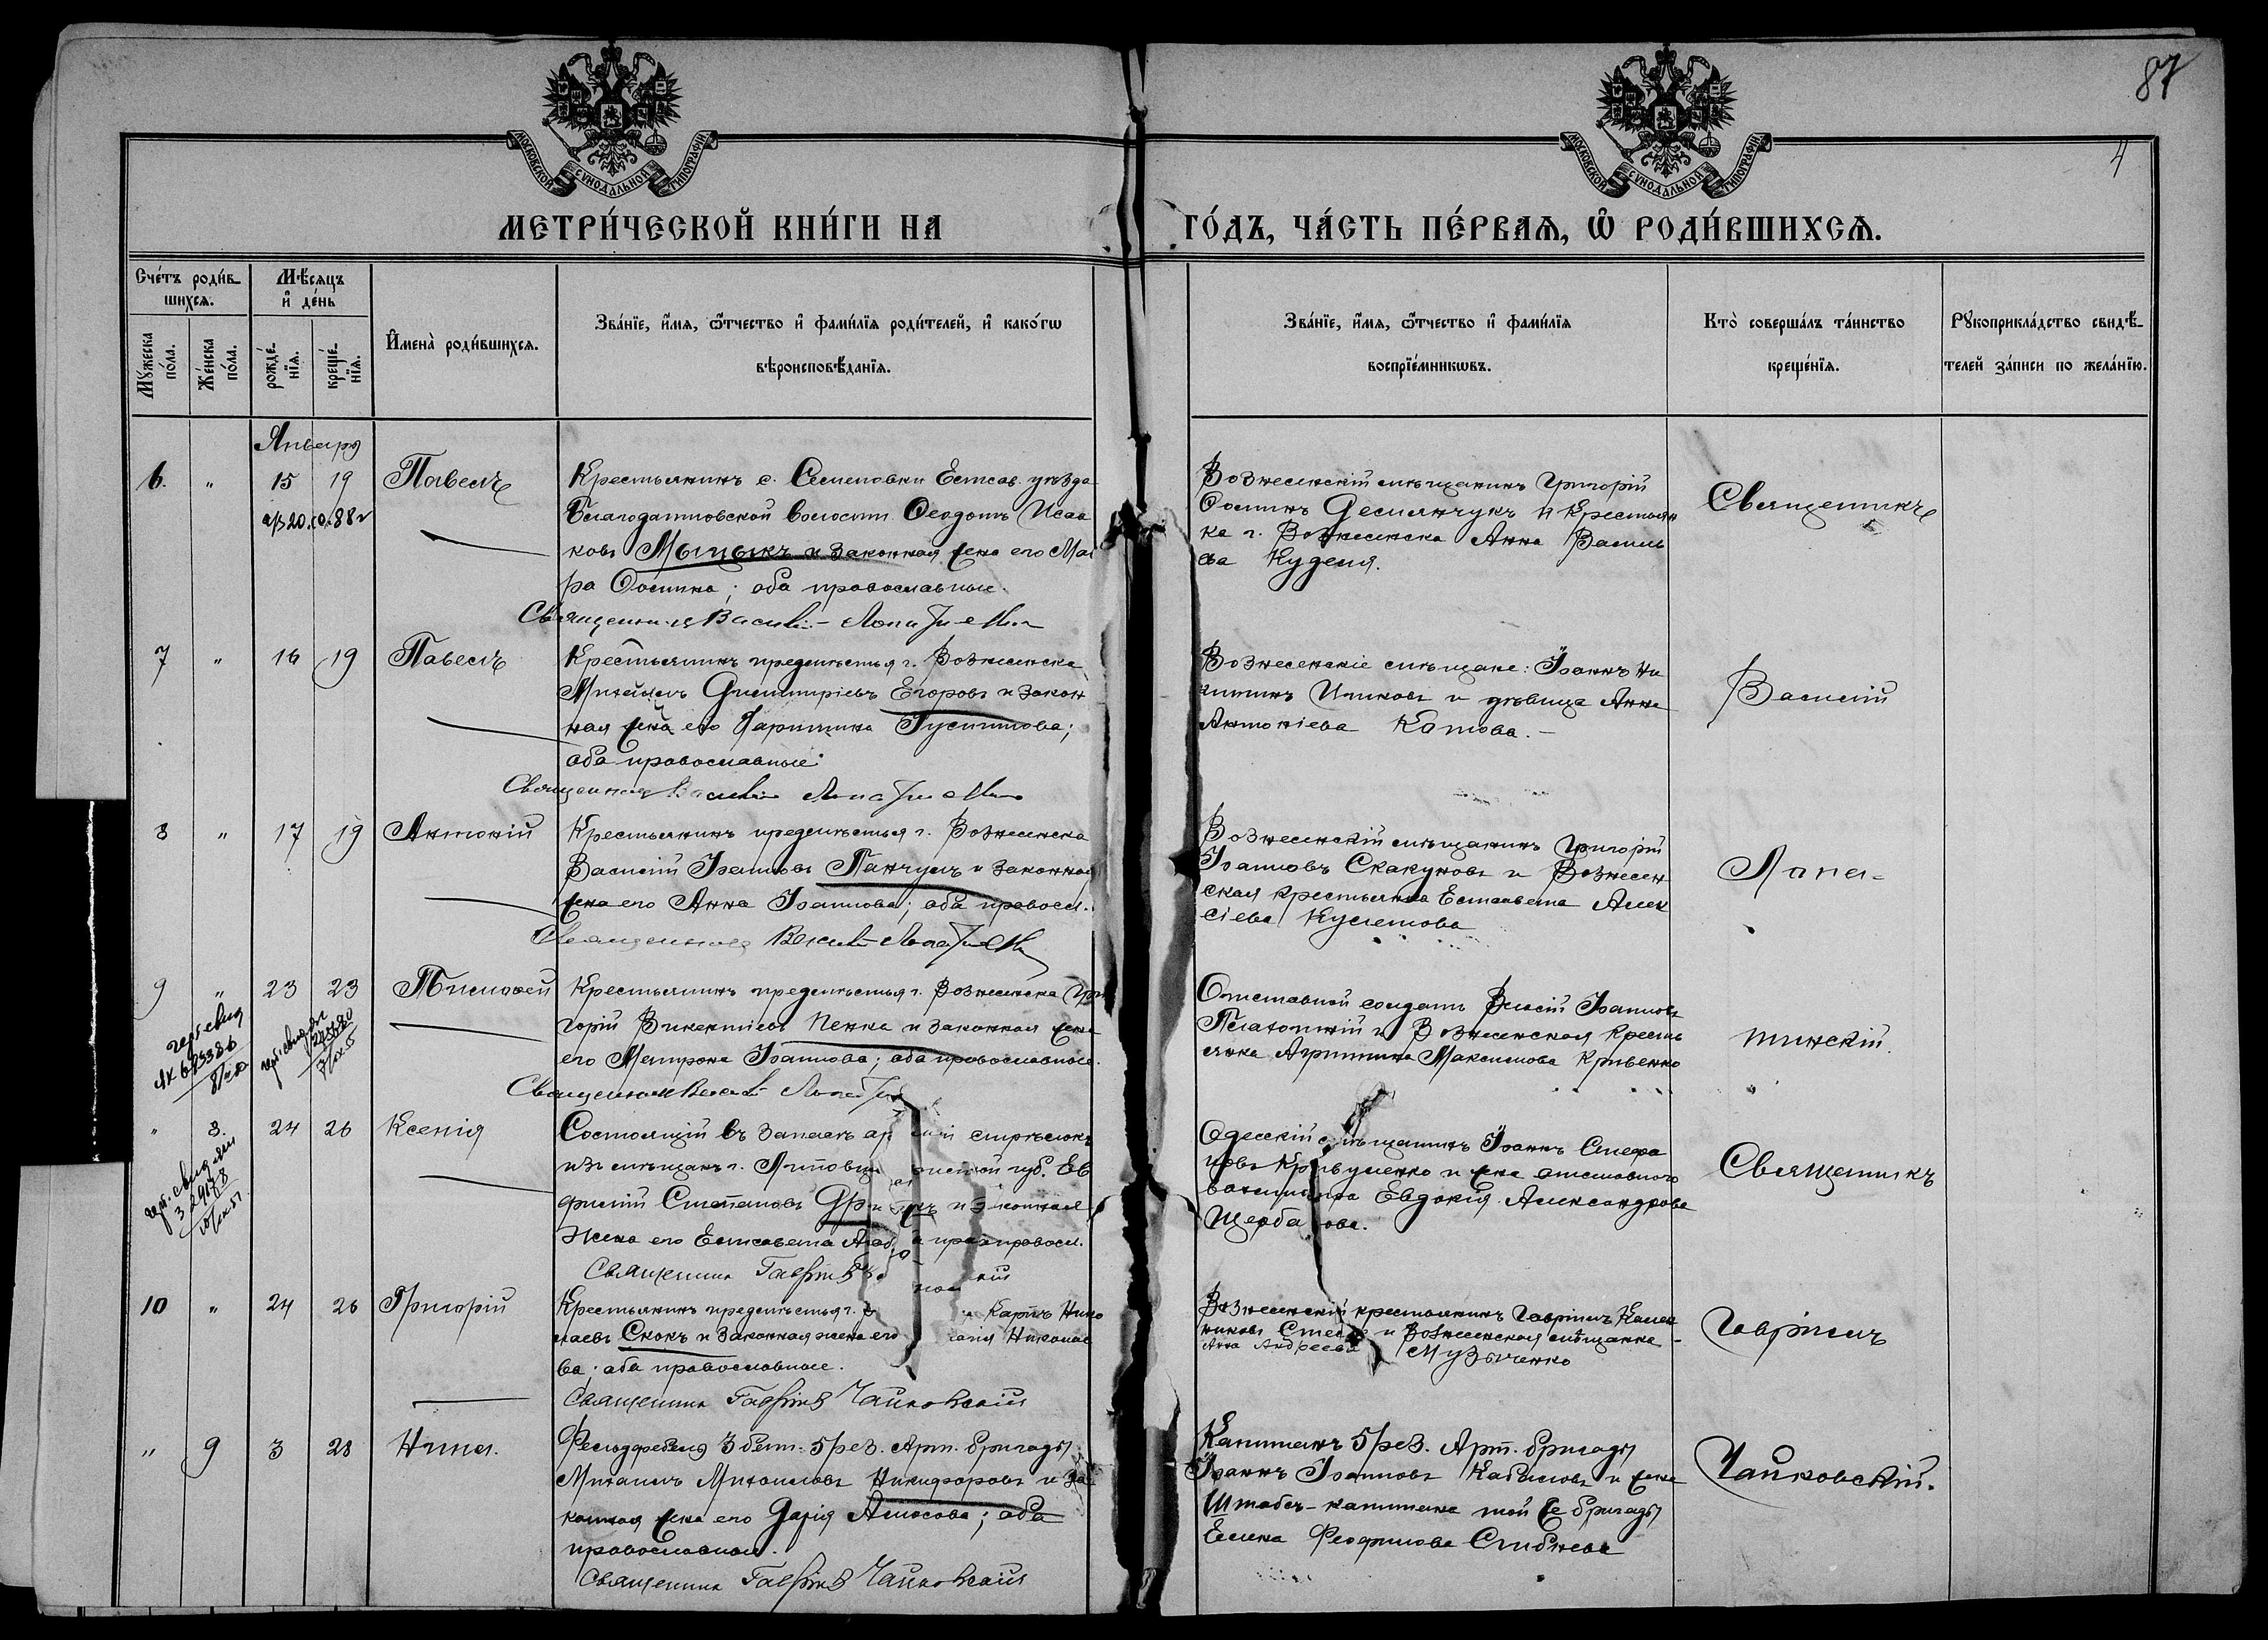 87
4
МОСКОВСКОЙ СѴНОДАЛЬНОЙ ТИПОГРАФІИ
МОСКОВСКОЙ СѴНОДАЛЬНОЙ ТИПОГРАФІИ
МЕТРИ́ЧЕСКОЙ КНИ́ГИ НА ГО́ДЪ, ЧА́СТЬ ПЕ́РВАѦ, Ѽ РОДИ́ВШИХСѦ.
Сче́тъ роди́в-
шихсѧ.
Мѣ́сѧцъ
и҆ де́нь
Мꙋ́жеска по́ла.
Же́нска по́ла.
рожде́-
нїѧ.
креще́-
нїѧ.
И҆мена̀ роди́вшихсѧ.
Зва́нїе, и҆́мѧ, ѻ҆́тчество и҆ фами́лїѧ роди́телей, и҆ како́гѡ
вѣроисповѣ́данїѧ.
Зва́нїе, и҆́мѧ, ѻ҆́тчество и҆ фами́лїѧ
воспрїе́мникѡвъ.
Кто̀ соверша́лъ та́инство
креще́нїѧ.
Рꙋкоприкла́дство свидѣ́-
телей за́писи по жела́нїю.
Января
6. " 15 19 Павелъ
Крестьянинъ с. Семеновки Елисав. уѣзда
Благодатновской волости Ѳеодотъ Исаа
ковъ и законная жена его Мав
ра Ѳомина; оба православные.
Священникъ Василій Лопатинскій
Вознесенскій мѣщанинъ Григорій
Ѳоминъ Десманчукъ и крестьян
ка г. Вознесенска Анна Василь
ева Куделя.
Священникъ
7 " 16 19 Павелъ
Крестьянинъ предмѣстья г. Вознесенска
Михаилъ Димитріевъ Егоровъ и закон
ная жена его Харитина Густитова;
оба православные
Священникъ Василій Лопатинскій
Вознесенскіе мѣщане: Іоаннъ Ни
китинъ и дѣвица Анна
Антоніева Катова. –
Василій
8 " 17 19 Антоній
Крестьянинъ предмѣстья г. Вознесенска
Василій Іоанновъ Панчулъ и законная
жена его Анна Іоаннова; оба правосл.
Священникъ Василій Лопатинскій
Вознесенскій мѣщанинъ Григорій
Іоанновъ Скакуновъ и Вознесен
ская крестьянка Елисавета Алек
сіева
Лопа-
9 " 23 23 Тимоѳей
Крестьянинъ предмѣстья г. Вознесенска Гри
горій Викентіевъ Пенка и законная жена
его Матрона Іоаннова; оба православные.
Священникъ Василій
Отставной солдатъ Іоанновъ
и Вознесенская кресть
янка Агриппина Максимова Кривенко
тинскій.
" 8. 24 26 Ксенія
Состоящій въ запасѣ стрѣлокъ
изъ мѣщанъ г. губ. Ев
фимій Степановъ и законная
жена его Елисавета правосл.
Священникъ Гавріилъ
Одесскій мѣщанинъ Іоаннъ Стефа
новъ и жена отставного
Евдокія Александрова
Щерба ова.
Священникъ
10 " 24 26 Григорій
Крестьянинъ предмѣстья г. В Карпъ Нико
лаевъ Скокъ и законная жена его Николае
ва; оба православные.
Священникъ Гавріилъ Чайковскій
Вознесенскій крестьянинъ Гавріилъ
и Вознесенская мѣщанка –
Анна Андреева Музыченко
Гавріилъ
" 9 3 28 Нина.
Фельдфебель 3 бат. 5 рез. Арт. бригады
Михаилъ Михаиловъ Никифоровъ и за
конная жена его Дарія Амосова; оба
православные.
Священникъ Гавріилъ Чайковскій
Капитанъ 5 рез. Арт. бригады
Іоаннъ Іоанновъ Кабиловъ и жена
Штабсъ-капитана той же бригады
Елена Ѳеофилова Стибнева
Чайковскій.